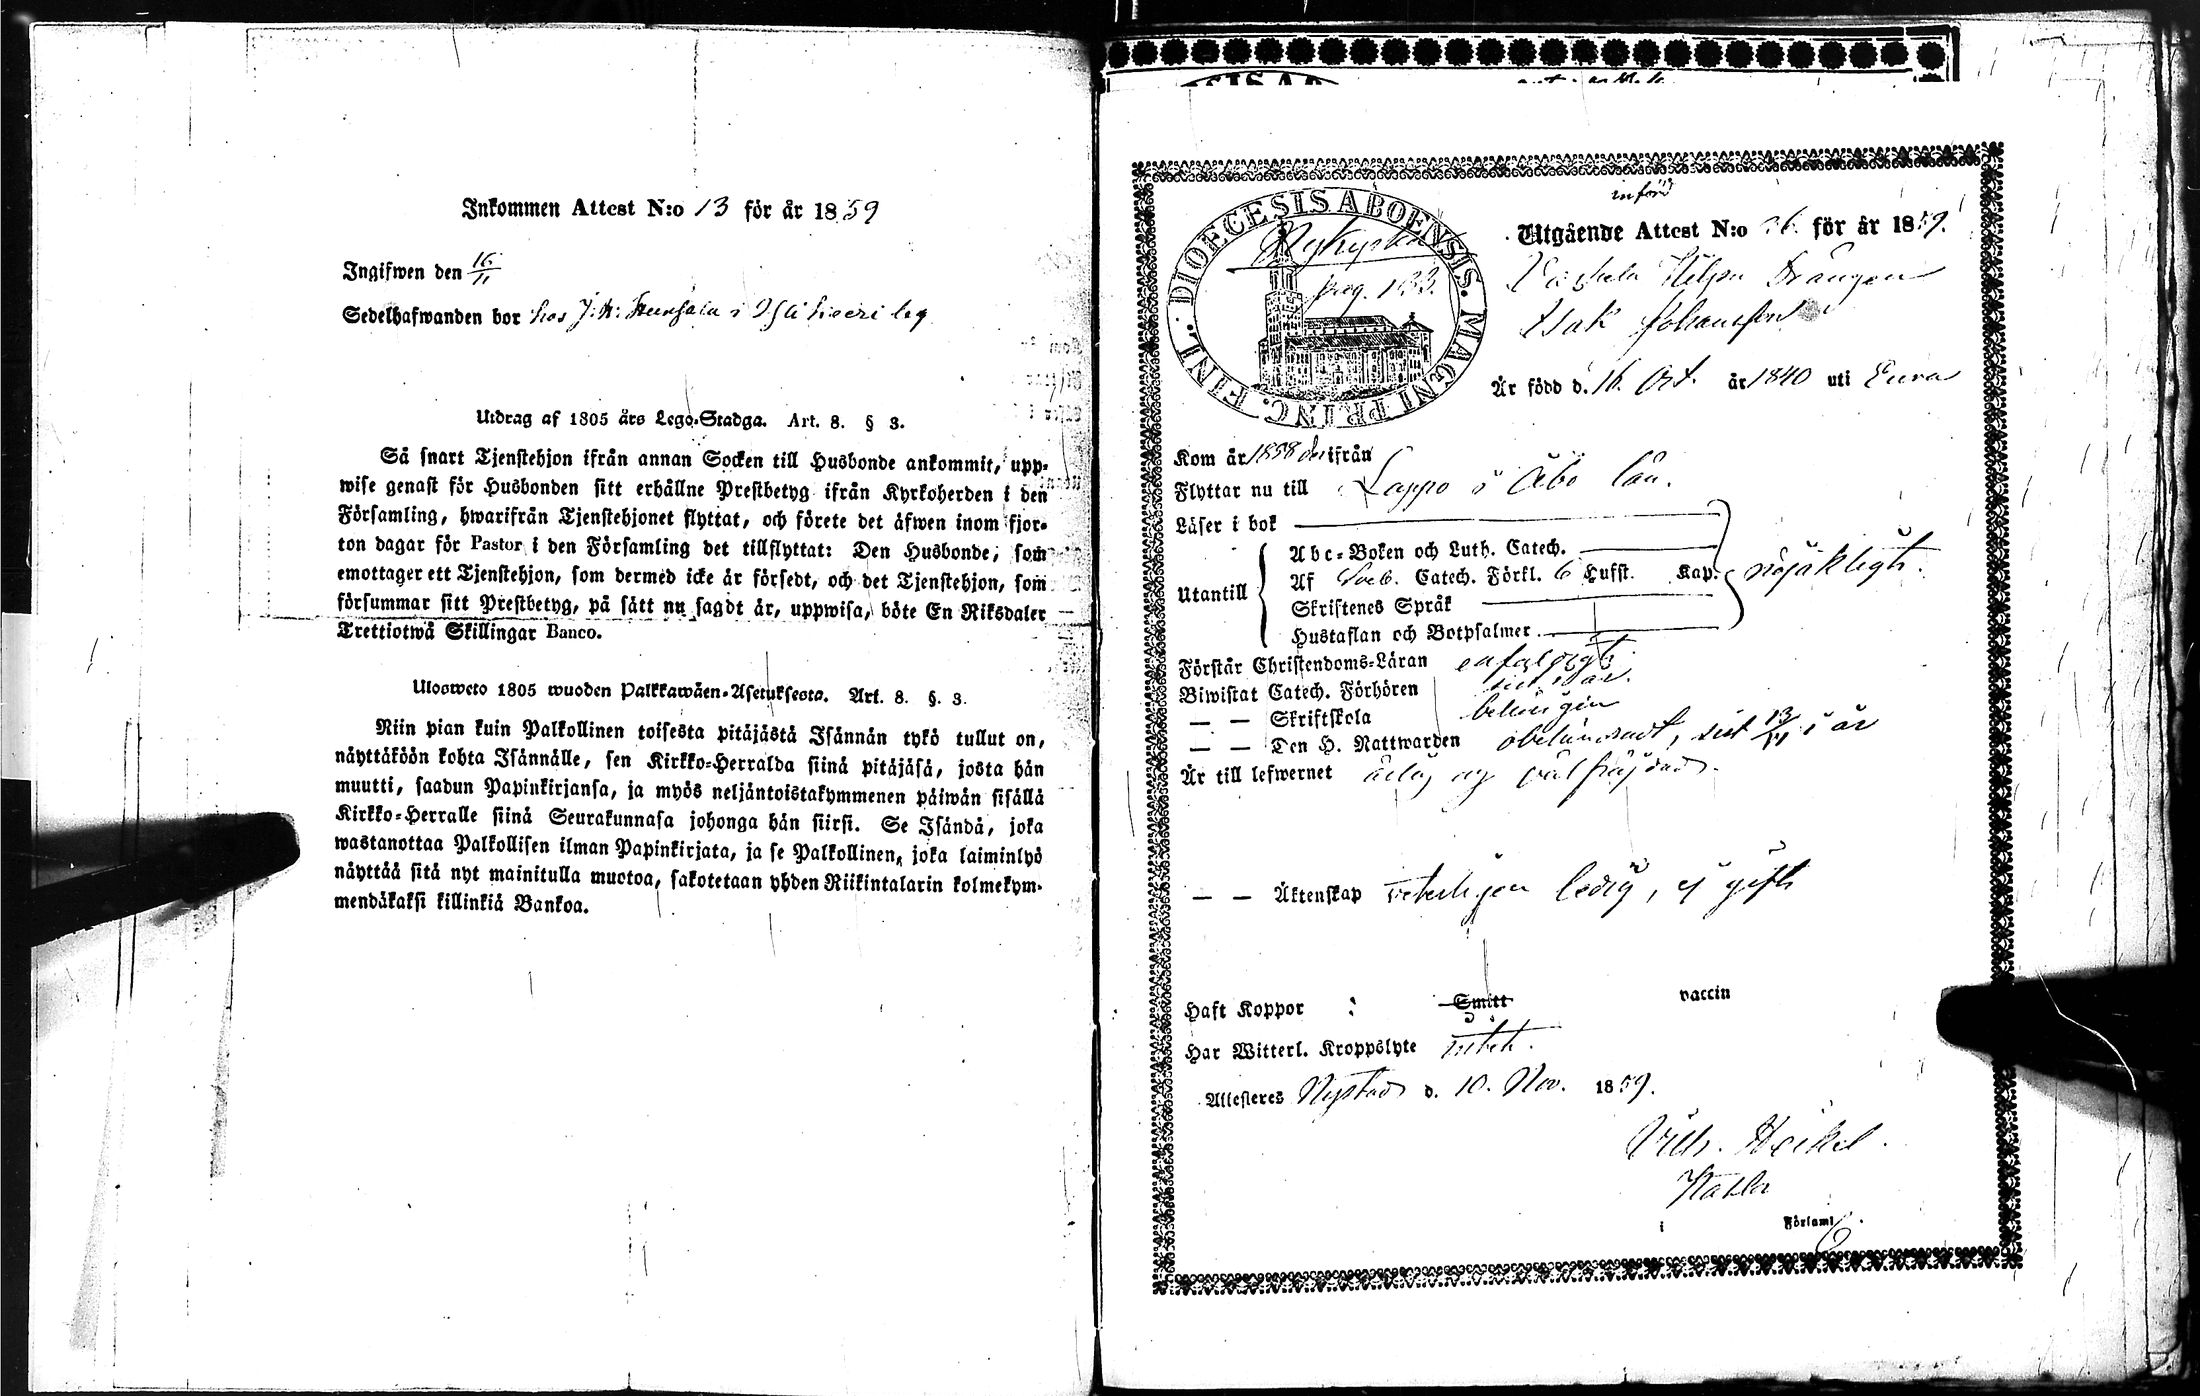 Inkommen Attest N:o 13 för år 1859
Ingifwen den 16/11
Sedelhafwanden bor hos J:k: i
Utdrag af 1805 års Lego-Stadga. Art. 8. § 3.
Så snart Tjenstehjon ifrån annan Socken till Husbonde ankommit, upp-
wise genast för Husbonden sitt erhållne Prestbetyg ifrån Kyrkoherden i den
Församling, hwarifrån Tjenstehjonet flyttat, och förete det äfwen inom fjor-
ton dagar för Pastor i den Församling det tillflyttat: Den Husbonde, som
emottager ett Tjenstehjon, som dermed icke är försedt, och det Tjenstehjon, som
försummar sitt Prestbetyg, på sätt nu sagdt är, uppwisa, böte En Riksdaler
Trettiotwå Skillingar Banco.
Ulosweto 1805 wuoden Palkkawäen-Asetuksesta. Art. 8. §. 3.
Niin pian kuin Palkollinen toisesta pitäjästä Isännän tykö tullut on,
näyttäköön kohta Isännälle, sen Kirkko-Herralda siinä pitäjäsä, josta hän
muutti, saadun Papinkirjansa, ja myös neljäntoistakymmenen päiwän sisällä
Kirkko-Herralle siinä Seurakunnasa johonga hän siirsi. Se Isändä, joka
wastanottaa Palkollisen ilman Papinkirjata, ja se Palkollinen, joka laiminlyö
näyttää sitä nyt mainitulla muotoa, sakotetaan yhden Riikintalarin kolmekym-
mendäkaksi killinkiä Bankoa.
DIOECESIS ABOENSIS. MAGNI PRINC. FINL.
Nykyrko
pag. 133.
införd
Utgående Attest N:o för år 1859.
Drängen
Isak Johansson
Är född d. 16. Oct. år 1840 uti Eura
Kom år 1858 ifrån
Flyttar nu till Lappo i Åbo län.
Läser i bok
Utantill
Abc-Boken och Luth. Catech.
Af Sveb. Catech. Förkl. 6 Hufst. Kap.
Skriftenes Språk
Hustaflan och Botpsalmer
nöjaktigt.
Förstår Christendoms-Läran enfaldigt
Biwistat Catech. Förhören
— — Skriftskola behörigen
— — Den H. Nattwarden obehindradt, sist i år
Är till lefwernet ärlig og välfräjdad.
— — Äktenskap veterligen ledig, ej gift
Haft Koppor : Smitt vaccin
Har Witterl. Kroppslyte intet.
Attesteres Nystad d. 10. Nov. 1859.
Vilh. Heikel.
i Församl.